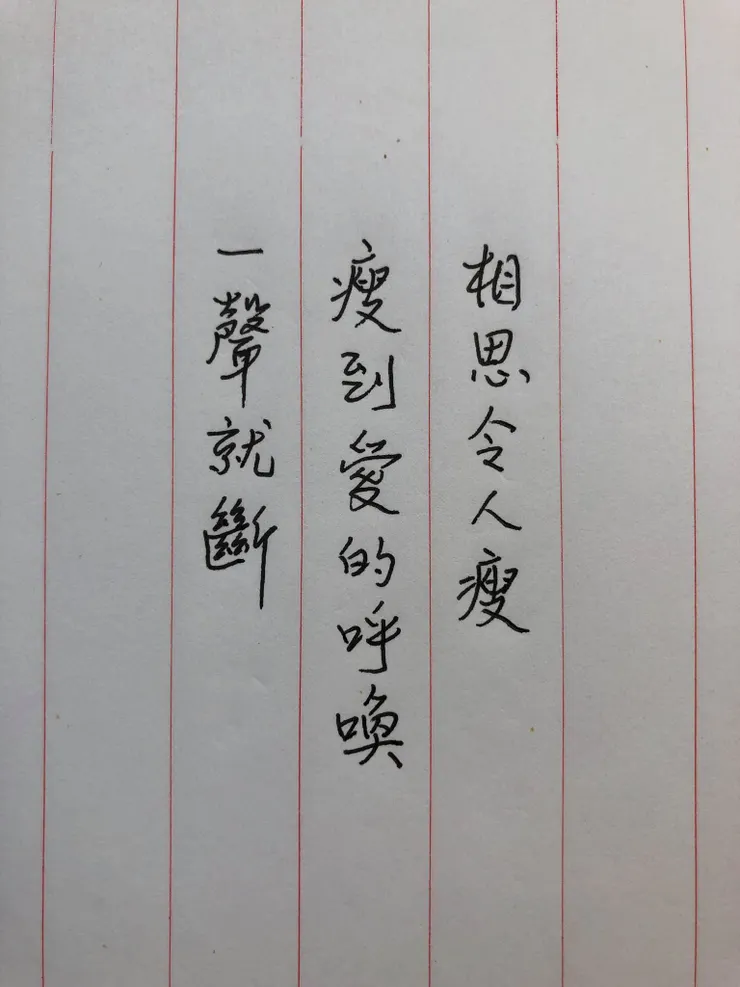 相思令人瘦
瘦到愛的呼喚
一聲就斷